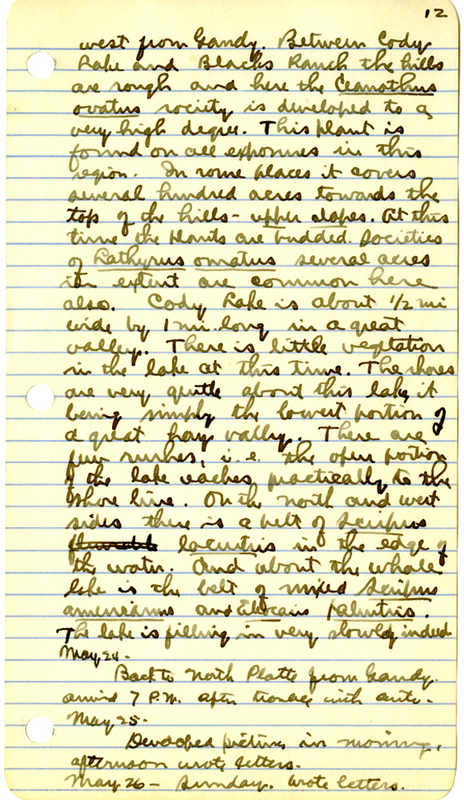 12
west from Gandy. Between Cody
Lake and Blacks Ranch the hills
are rough and here the Ceanothus
ovatus society is developed to a
very high degree. This plant is
found on all exposures in this
region. In some places it covers
several hundred acres towards the
top of the hills - upper slopes. At this
time the plants are budded. Societies
of Lathyrus ornatus several acres
in extent are common here
also. Cody Lake is about 1/2 mi
wide by 1 mi. long in a great
valley. There is little vegetation
in the lake at this time. The shores
are very gentle about this lake it
being simply the lowest portion of
a great valley. There are
few rushes, i.e. the open portion
of the lake reaches practically to the
shore line. On the north and west
sides there is a belt of Scirpus
lacustris in the edge of
the water. And about the whole
lake is the belt of mixed Scirpus
americanus and palustris.
The lake is filling in very slowly indeed
May 24.
Back to North Platte from Gandy.
arrived 7 P.M. after with auto.
May 25.
Developed pictures in morning,
afternoon wrote letters.
May 26 - Sunday. Wrote letters.